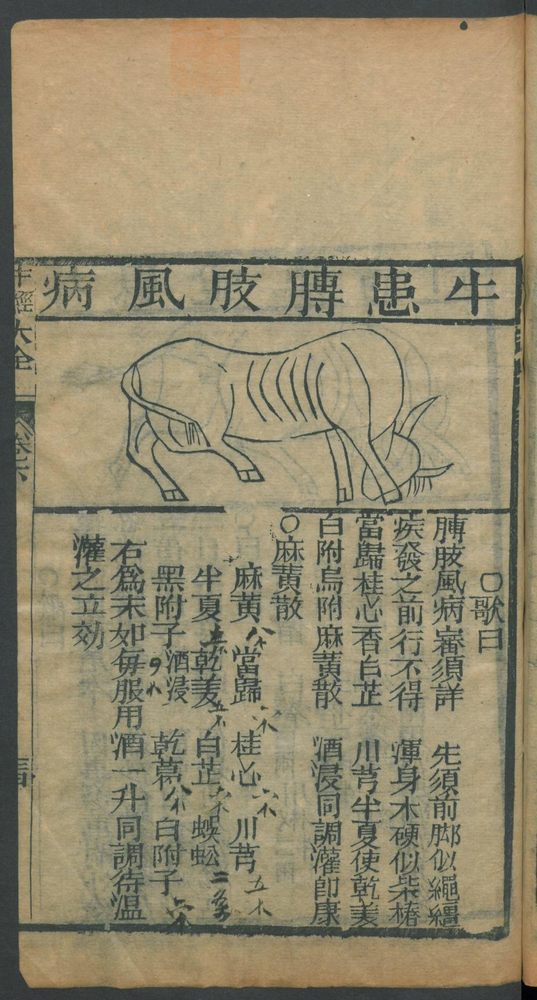 牛患膊肢風病
○歌曰
膊肢風病審須詳　先須前脚似繩繮
疾發之前行不得　渾身木硬似柴樁
當歸桂心香白芷　川芎半夏使乾姜
白附烏附麻黄散　酒浸同調灌即康
○麻黄散
麻黄　當歸　桂心　川芎
半夏　乾姜　白芷　蜈蚣
黑附子酒浸　乾　白附子
右為末如每服用酒一升同調待温
灌之立効
牛經大全
卷六